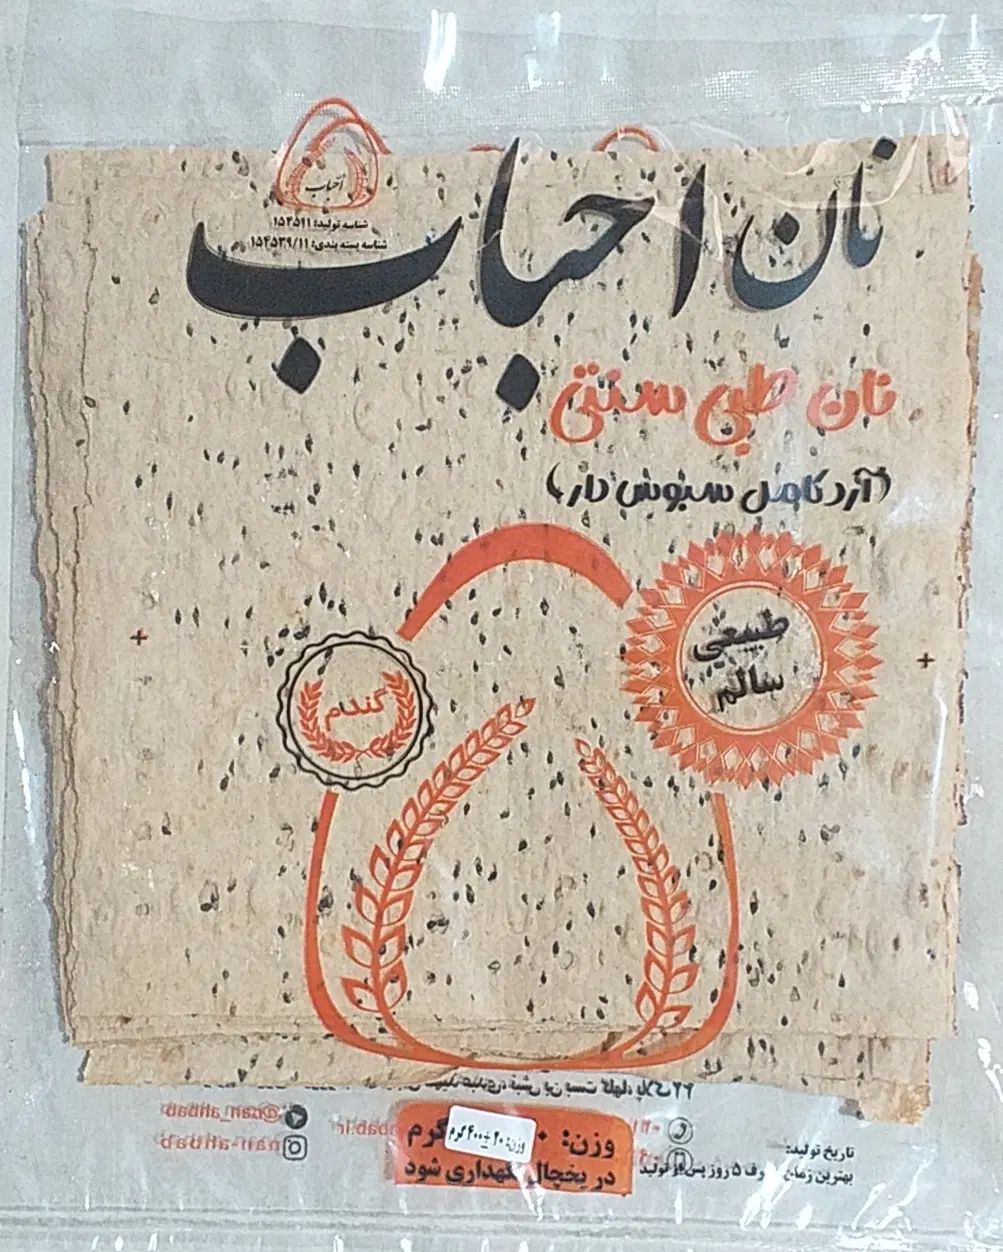 احباب
شناسه تولید: ۱۵۴۵۱۱
شناسه بسته بندی: ۱۵۴۵۳۹/۱۱
نان احباب
نان طبی سنتی
(آرد کامل سبوس دار)
طبیعی
سالم
گندم
بن بست گلها، پلاک ۲۲
@nan_ahbab
nan-ahbab
وزن: گرم
وزن: ۲۰±۴۰۰گرم
در یخچال نگهداری شود
تاریخ تولید:
بهترین زمان ۵ روز پس از تولید